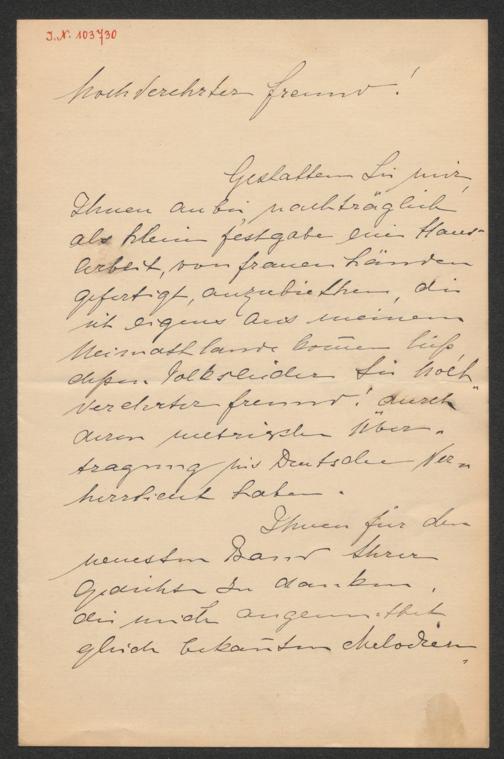 J. N. 103730
Hochverehrter Freund!
Gestatten Sie mir,
Ihnen anbei, nachträglich
als kleine Festgabe eine Haus-
arbeit, von Frauen Händen
gefertigt, anzubiethen, die
ich eigens aus meinem
Heimathlande kom̅en ließ
deßen Volkslieder Sie hoch-
verehrter Freund! durch
deren metrischen Über-
tragung ins Deutsche Ver-
herrlicht haben.
Ihnen für den
neuesten Band Ihrer
Gedichte zu danken,
die mich angemuthet
gleich bekan̅ten Melodien,